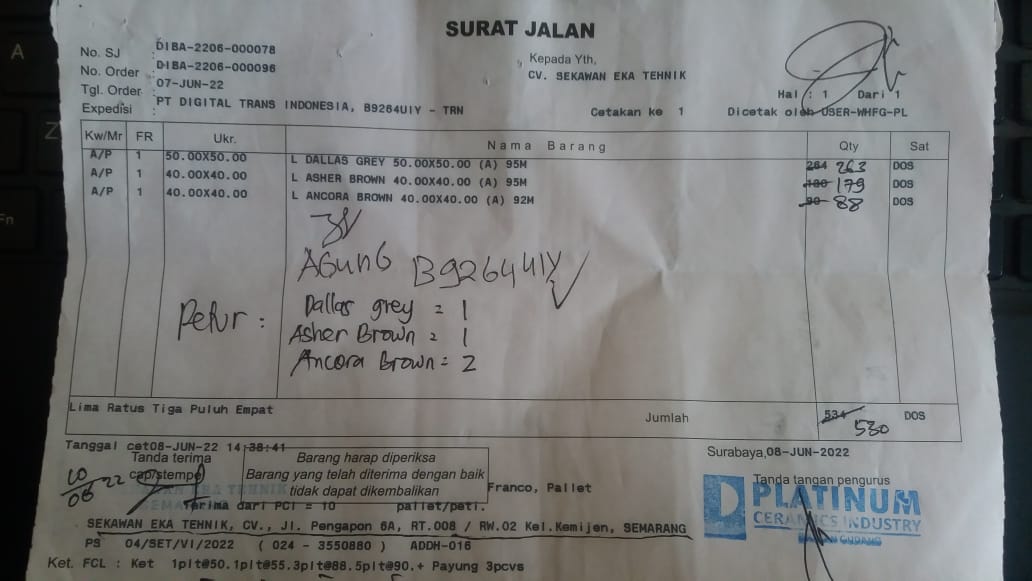 SURAT JALAN
No. SJ DIBA-2206-000078
No. Order DIBA-2206-000096
Tgl. Order 07-JUN-22
Expedisi PT DIGITAL TRANS INDONESIA, B9264UIY - TRN
Kepada Yth,
CV. SEKAWAN EKA TEHNIK
Hal : 1 Dari 1
Cetakan ke 1 Dicetak oleh USER-WHFG-PL
Kw/Mr FR Ukr. Nama Barang Qty Sat
A/P 1 50.00X50.00 L DALLAS GREY 50.00X50.00 (A) 95M 264 263 DOS
A/P 1 40.00X40.00 L ASHER BROWN 40.00X40.00 (A) 95M 180 179 DOS
A/P 1 40.00X40.00 L ANCORA BROWN 40.00X40.00 (A) 92M 90 88 DOS
AGUNG B9264UIY
Dallas grey = 1
Asher Brown = 1
Ancora Brown = 2
Lima Ratus Tiga Puluh Empat Jumlah 534 530 DOS
Tanggal cet08-JUN-22 14:38:41
Tanda terima
cap/stempel
10/06 22
Barang harap diperiksa
Barang yang telah diterima dengan baik
tidak dapat dikembalikan
Surabaya,08-JUN-2022
Tanda tangan pengurus
PLATINUM
CERAMICS INDUSTRY
GUDANG
Franco, Pallet
Terima dari PCI = 10 pallet/peti.
SEKAWAN EKA TEHNIK, CV., Jl. Pengapon 6A, RT.008 / RW.02 Kel.Kemijen, SEMARANG
PS 04/SET/VI/2022 ( 024 - 3550880 ) ADDH-016
Ket. FCL : Ket 1plt@50.1plt@55.3plt@88.5plt@90.+ Payung 3pcvs